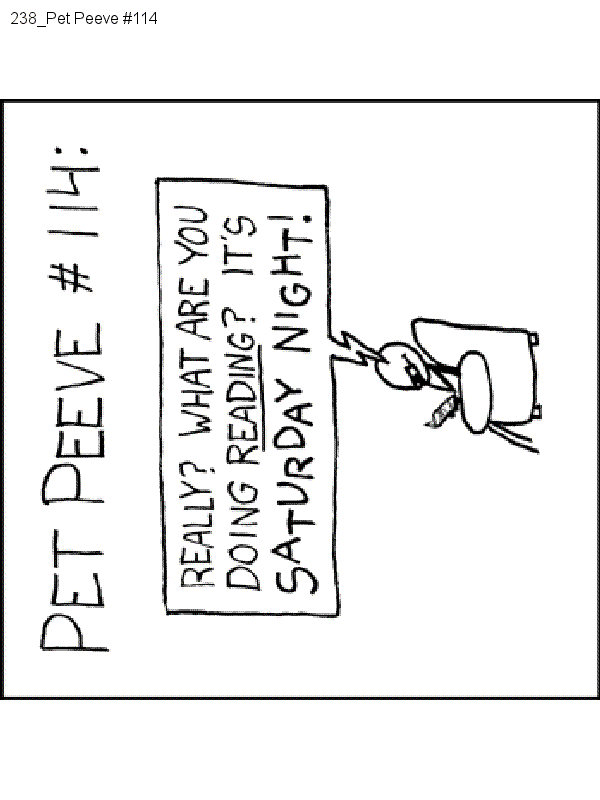 238_Pet Peeve #114
PET PEEVE #114:
REALLY? WHAT ARE YOU
DOING READING? IT'S
SATURDAY NIGHT!